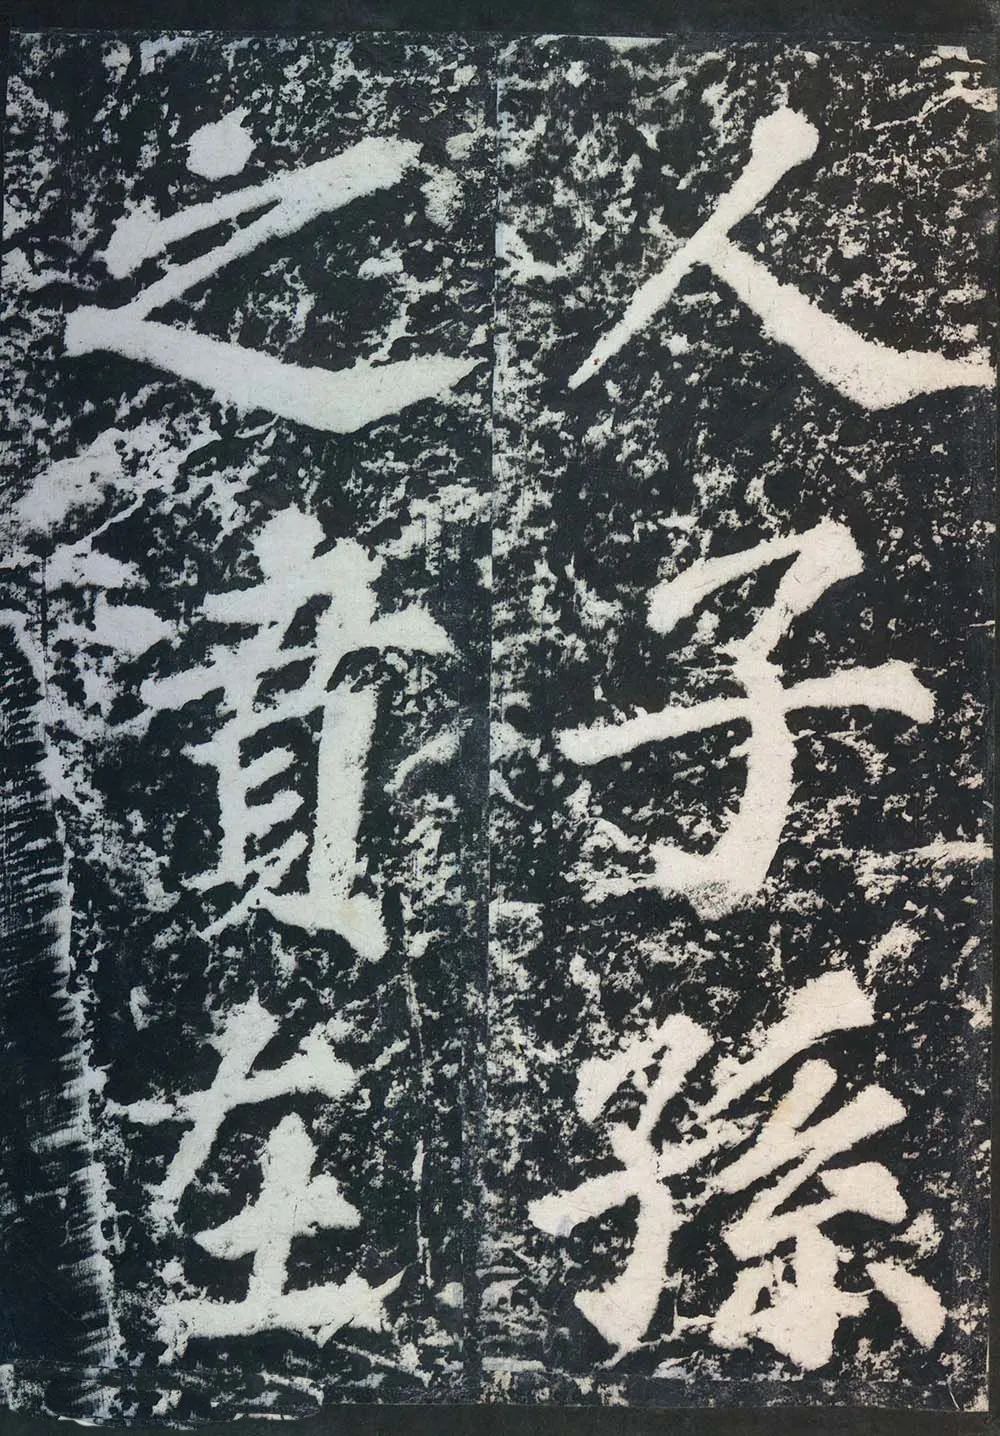 人子孫
之貴在